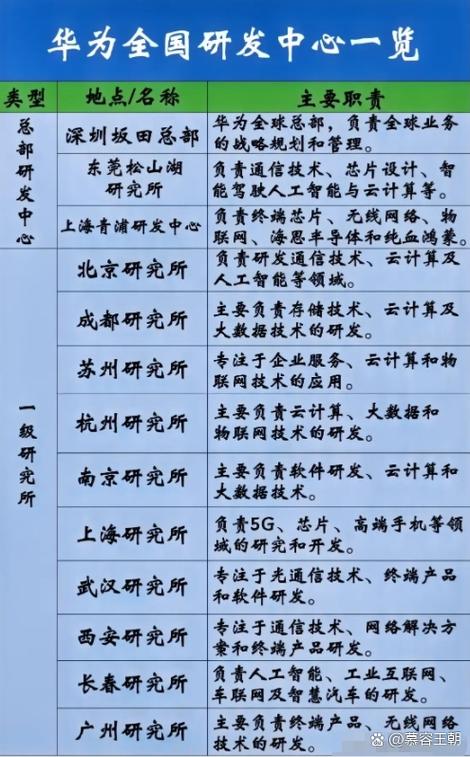 华为全国研发中心一览
类型 地点/名称 主要职责
总部研发中心
深圳坂田总部 华为全球总部，负责全球业务
的战略规划和管理。
东莞松山湖
研究所
负责通信技术、芯片设计、智
能驾驶人工智能与云计算等。
上海青浦研发中心 负责终端芯片、无线网络、物
联网、海思半导体和纯血鸿蒙。
一级研究所
北京研究所 负责研发通信技术、云计算及
人工智能等领域。
成都研究所 主要负责存储技术、云计算及
大数据技术的研发。
苏州研究所 专注于企业服务、云计算和物
联网技术的应用。
杭州研究所 主要负责云计算、大数据和
物联网技术的研发。
南京研究所 主要负责软件研发、云计算和
大数据技术。
上海研究所 负责5G、芯片、高端手机等领
域的研究和开发。
武汉研究所 专注于光通信技术、终端产品
和软件研发。
西安研究所 专注于通信技术、网络解决方
案和终端产品研发。
长春研究所 负责人工智能、工业互联网、
车联网及智慧汽车的研发。
广州研究所 主要负责终端产品、无线网络
技术的研发。
@慕容王朝